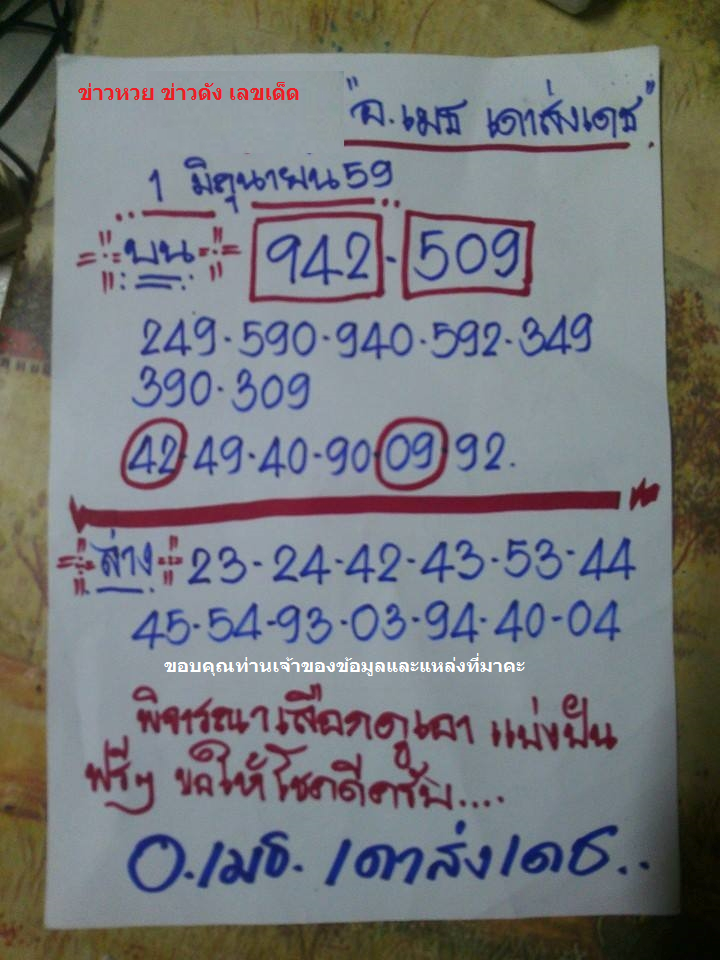 ข่าวหวย ข่าวดัง เลขเด็ด
"อ.เมธ เดาส่งเดช"
1 มิถุนายน 59
บน 942-509
249-590-940-592-349
390-309
42-49-40-90-09-92.
ล่าง 23-24-42-43-53-44
45-54-93-03-94-40-04
ขอบคุณท่านเจ้าของข้อมูลและแหล่งที่มาคะ
พิจารณาเลือกดูเอา แบ่งปัน
ฟรีๆ ขอให้โชคดีครับ....
อ.เมธ. เดาส่งเดช..